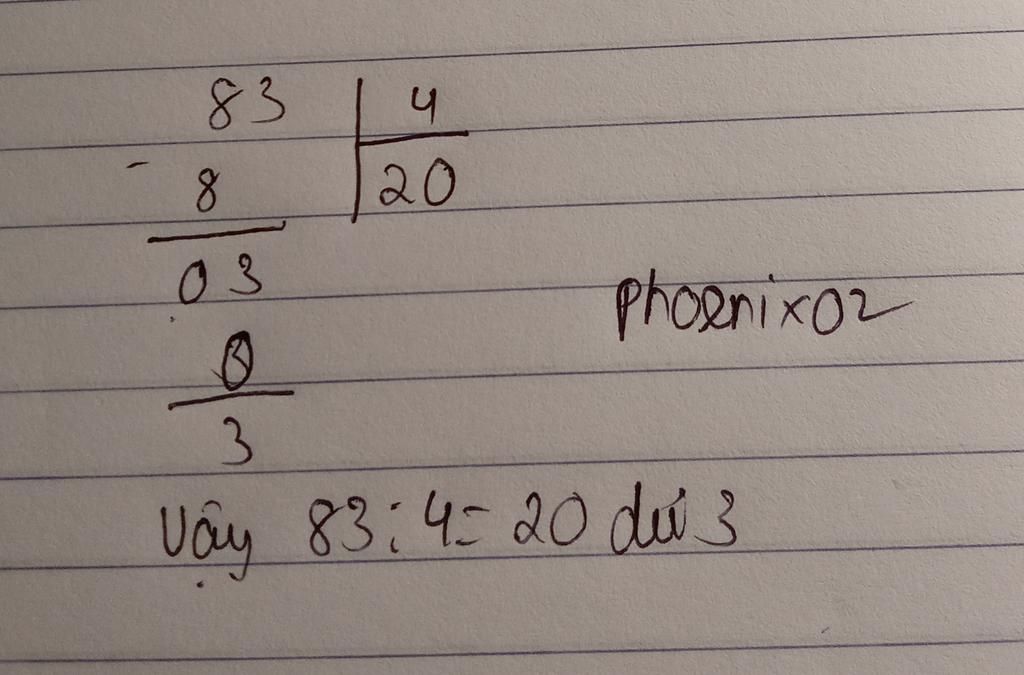 83 | 4
- 8 | 20
03
0
3
phoenix02
Vậy 83 : 4 = 20 dư 3